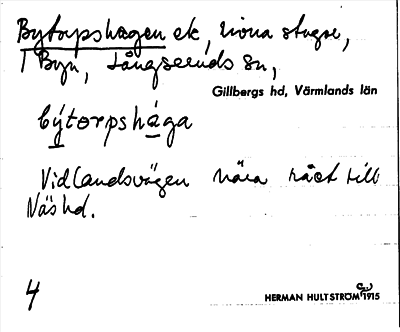 Bytorpshagen ek, stugor,
i Byn, Långseruds sn,
Gillbergs hd, Värmlands län
býtorpshága
Vid landsvägen nära häct till
Näs hd.
4
HERMAN HULTSTRÖM 1915